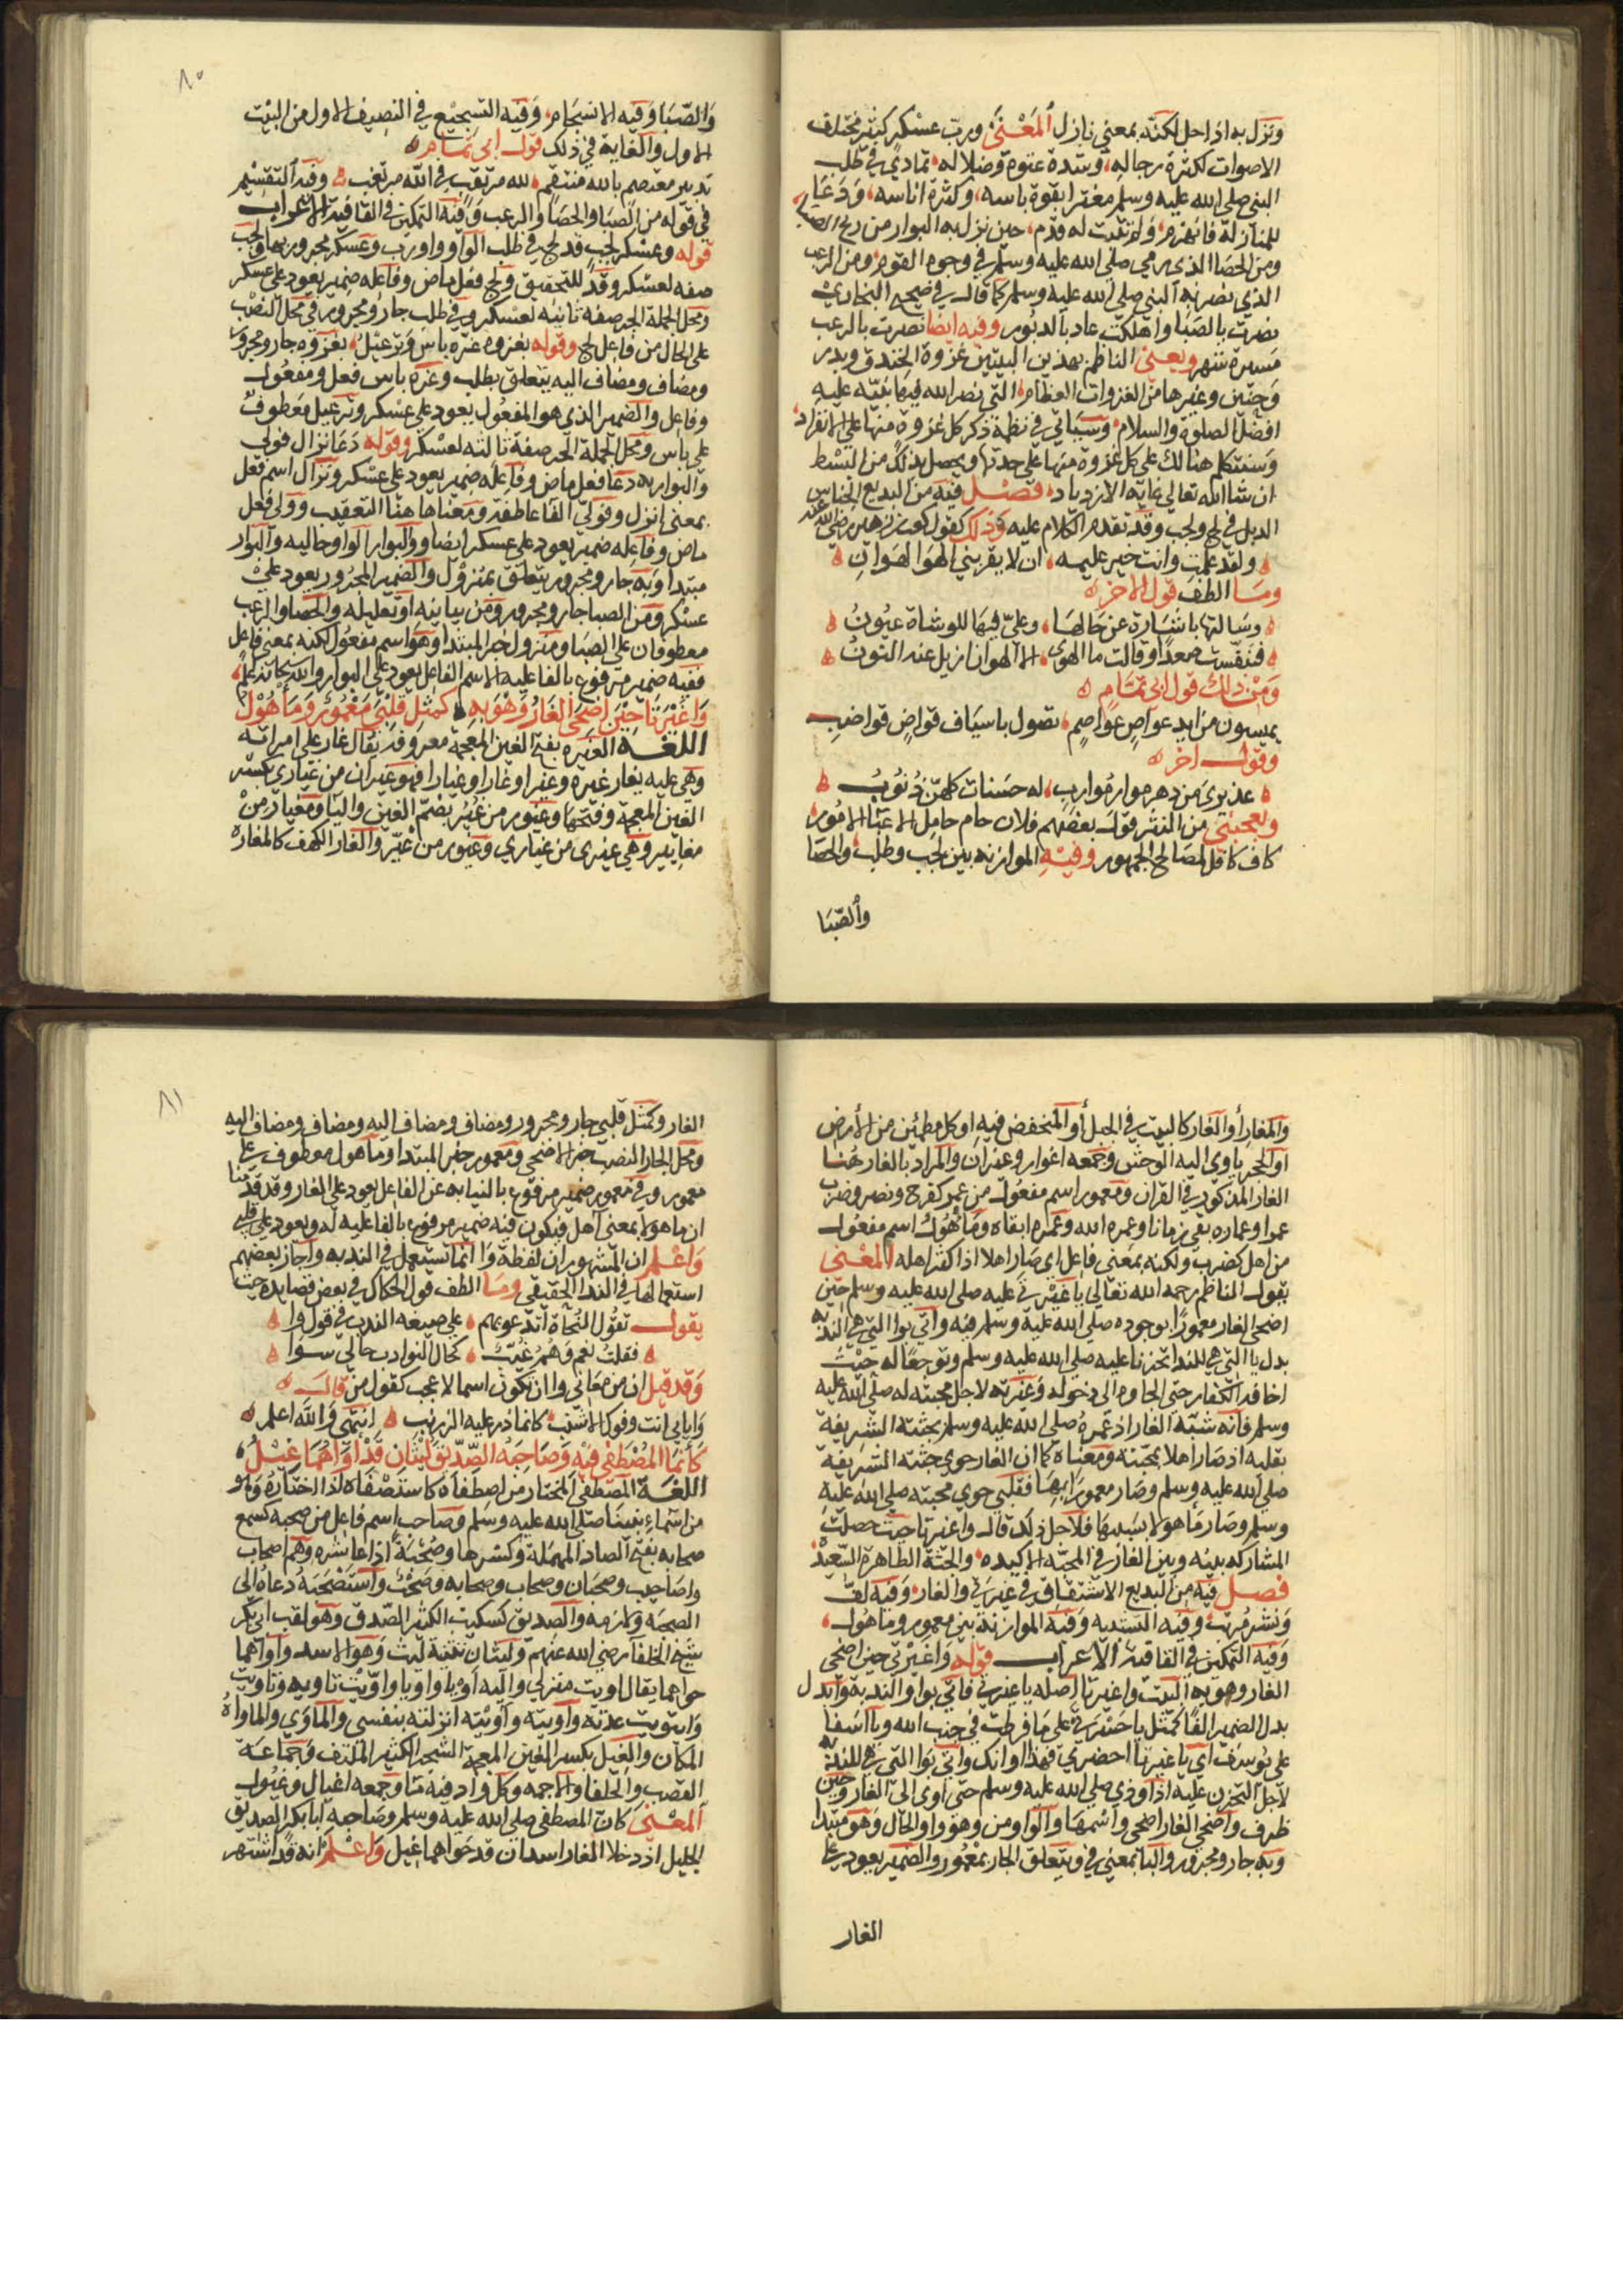 ونزل به اذا حل لكنه بمعني نازل المعني ورب عسكر كثير مختلف
الاصوات لكثرة رجاله، وشدة عتوه وضلاله، تمادي في طلب
النبي صلي الله عليه وسلم مغترا بقوة باسه، وكثرة اناسه، ودعا
للمنازلة فانهزم، ولم تثبت له قدم، حين نزل به البوار من ريح الصبا
ومن الحصا الذي رمي صلي الله عليه وسلم في وجوه القوم ومن الرعب
الذي نصر به النبي صلي الله عليه وسلم كما قال في صحيح البخاري
نصرت بالصبا واهلكت عاد بالدبور وفيه ايضا نصرت بالرعب
مسيرة شهر ويعني الناظم بهذين البيتين غزوة الخندق وبدر
وحنين وغيرها من الغزوات العظام، التي نصر الله فيها نبيه عليه
افضل الصلوة والسلام، وسياتي في نظمه ذكر كل غزوة منها علي الانفراد
وسنتكلم هنالك علي كل غزوة منها علي حدتها ويحصل بذلك من البسط
ان شا الله تعالي غاية الازدياد، فصل فيه من البديع الجناس
الذيل في لج ولجب وقد تقدم الكلام عليه وذلك كقول كعب بن زهير رضي الله عنه
ولقد علمت وانت خير عليمه، ان لا يقربني الهوا لهوان
وما الطف قول الاخر
وسالتها باشارة عن حالها، وعلي فيها للوشاة عيون
فتنفست صعدا وقالت ما الهوي، الا الهوان ازيل عنه النون
ومن ذلك قول ابي تمام
يمدون من ايد عواص عواصم، تصول باسياف قواض قواضب
وقول اخر
عذيري من دهر موار موارب، له حسنات كلهن ذنوب
ويعجبني من النثر قول بعضهم فلان حام حامل الاعبا الامور
كاف كافل لمصالح الجمهور وفيه الموازنة بين لجب وطلب والحصا
والصبا
٨٠
والصبا وفيه الانسجام، وفيه التسجيع في النصيف الاول من البيت
الاول والغاية في ذلك قول ابي تمام
تدبير معتصم بالله منتقم، لله مرتقب في الله مرتغب وفيه التقسيم
في قوله من الصبا والحصا والرعب وفيه التمكين في القافية الاعراب
قوله وعسكر لجب قد لج في طلب الواو واو رب وعسكر مجرور بها ولجب
صفه لعسكر وقد للتحقيق ولج فعل ماض وفاعله ضمير يعود علي عسكر
ومحل الجملة الجر صفة ثانيه لعسكر وفي طلب جار ومجرور في محل النصب
علي الحال من فاعل لج وقوله بغزوه غره باس وترعيل، بغزوه جار ومجرور
ومضاف ومضاف اليه يتعلق بطلب وغره باس فعل ومفعول
وفاعل والضمير الذي هو المفعول يعود علي عسكر وترعيل معطوف
علي باس ومحل الجملة الجر صفة ثالثه لعسكر وقوله دعا نزال فولي
والبوار به دعا فعل ماض وفاعله ضمير يعود علي عسكر ونزال اسم فعل
بمعني انزل وفولي الفا عاطفة ومعناها هنا التعقيب وولي فعل
ماض وفاعله ضمير يعود علي عسكر ايضا والبوار الواو حاليه والبوار
مبتدا وبه جار ومجرور يتعلق بمنزول والضمير المجرور يعود علي
عسكر ومن الصبا جار ومجرور ومن بيانيه او تعليليه والحصا والرعب
معطوفان علي الصبا ومنزول خبر المبتدا وهو اسم مفعول لكنه بمعني فاعل
ففيه ضمير مرفوع بالفاعليه لاسم الفاعل يعود علي البوار والله سبحانه اعلم
وا غيرتا حين اضحي الغار وهو به، كمثل قلبي معمور وماهول
اللغة الغيره بفتح الغين المعجمة معروفه يقال غار علي امراته
وهي عليه يغار غيره وغيرا وغارا وغيارا فهو غيران من غياري بكسر
الغين المعجمة وفتحها وغيور من غير بضم الغين واليا ومغيار من
مغايير وهي غيري من غياري وغيور من غير والغار الكهف كالمغاره
والمغار أو الغار كالبيت في الجبل أو المنخفض فيه او كل مطمئن من الأرض
او الجحر ياوي اليه الوحش وجمعه اغوار وغيران والمراد بالغار هنا
الغار المذكور في القران ومعمور اسم مفعول من عمر كفرح ونصر وضرب
عمرا وعماره بقي زمانا وعمره الله وعمره ابقاه وماهول اسم مفعول
من اهل كضرب ولكنه بمعني فاعل اي صار اهلا اذا كثر اهله المعني
يقول الناظم رحمه الله تعالي يا غيرتي عليه صلي الله عليه وسلم حين
اضحي الغار معمورا بوجوده صلي الله عليه وسلم فيه واتي بوا التي هي للندبه
بدل يا التي هي للندا تحزنا عليه صلي الله عليه وسلم وتوجعا له حيث
اخافه الكفار حتي الجاوه الي دخوله وغيرته لاجل محبته له صلي الله عليه
وسلم فانه شبه الغار اذ عمره صلي الله عليه وسلم بجثته الشريفة
بقلبه اذ صار اهلا بمحبته ومعناه كما ان الغار حوي جثته الشريفة
صلي الله عليه وسلم وصار معمورا بها فقلبي حوي محبته صلي الله عليه
وسلم وصار ماهولا بسببها فلاجل ذلك قال وا غيرتا حيث حصلت
المشاركه بينه وبين الغار في المحبه الاكيده، والجثة الطاهرة السعيده
فصل فيه من البديع الاشتقاق في غيرتي والغار، وفيه لف
ونشر مرتب، وفيه التشبيه وفيه الموازنة بين معمور وماهول،
وفيه التمكين في القافية الاعراب قوله وا غيرتي حين اضحي
الغار وهو به البيت وا غيرتا اصله يا غيرتي فاتي بواو الندبة وابدل
بدل الضمير الفا كمثل يا حسرتي علي ما فرطت في جنب الله ويا اسفا
علي يوسف اي يا غيرتا احضري فهذا اوانك واتي بوا التي هي للندبة
لاجل التحزن عليه اذ اوذي صلي الله عليه وسلم حتي اوي الي الغار وحين
ظرف واضحي الغار اضحي واسمها والواو من وهو واو الحال وهو مبتدا
وبه جار ومجرور والبا بمعني في ويتعلق الجار بمعمور والضمير يعود علي
الغار
٨١
الغار وكمثل قلبي جار ومجرور ومضاف ومضاف اليه ومضاف ومضاف اليه
ومحل الجار النصب خبر لاضحي ومعمور خبر المبتدا وماهول معطوف علي
معمور وفي معمور ضمير مرفوع بالنيابه عن الفاعل يعود علي الغار وقد قدمنا
ان ماهولا بمعني آهل فيكون فيه ضمير مرفوع بالفاعليه له ويعود علي قلبي
واعلم ان المشهور ان لفظة وا انما تستعمل في الندبه واجاز بعضهم
استعمالها في الندا الحقيقي وما الطف قول الحكاك في بعض قصايده حيث
يقول تقول النحاة اتدعوبهم، علي صيغه الندب في قول وا
فقلت نعم وهم غيب، كحال النوادب حالي سوا
وقد قيل ان من معاني وا ان تكون اسما لاعجب كقول من قال
وا بابي انت وفوك الاشنب، كانما ذر عليه الزرنب انتهي والله اعلم
كأنما المصطفي فيه وصاحبه الصديق ليثان قد اواهما غيل
اللغة المصطفي المختار من اصطفاه كاستصفاه اذا اختاره وهو
من اسماء نبينا صلي الله عليه وسلم وصاحب اسم فاعل من صحبه كسمع
صحابه بفتح الصاد المهمله وكسرها وصحبة اذا عاشره وهم اصحاب
واصاحيب وصحبان وصحاب وصحابه وصحب واستصحبه دعاه الي
الصحبه ولازمه والصديق كسكيت الكثير الصدق وهو لقب ابي بكر
شيخ الخلفا رضي الله عنهم وليثان تثنية ليث وهو الاسد واواهما
حواهما يقال اويت منزلي واليه أويا واويا واويت تاويه وتاويت
واتويت عدته واويته وآويته انزلته بنفسي والماوي والماواة
المكان والغيل بكسر الغين المعجمة الشجر الكثير الملتف وجماعة
القصب والحلفا والاجمه وكل واد فيه ما وجمعه اغيال وغيول
المعني كان المصطفي صلي الله عليه وسلم وصاحبه ابا بكر الصديق
الجليل اذ دخلا الغار اسدان قد حواهما غيل واعلم انه قد اشتهر